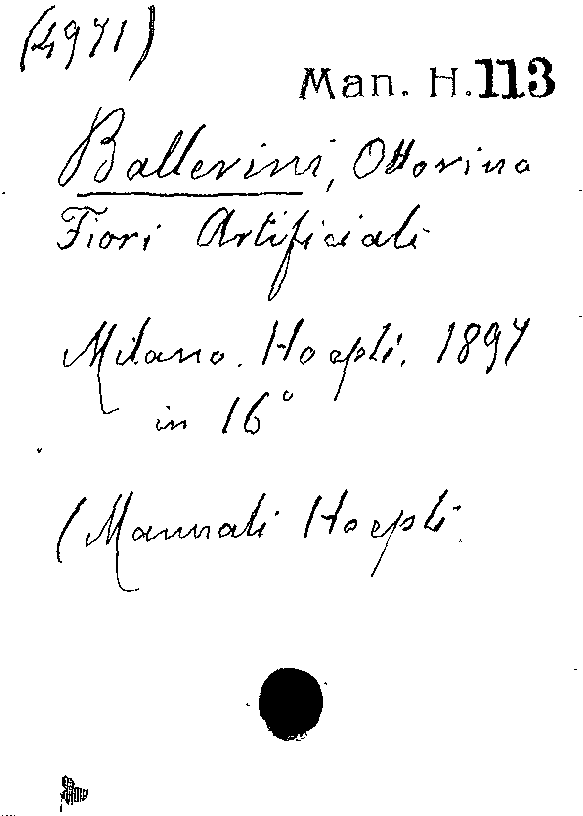 (4971)
Man. H. 113
Ballerini, Ottorino
Fiori Artificiali
Milano. Hoepli. 1897
in 16°
(Manuali Hoepli.